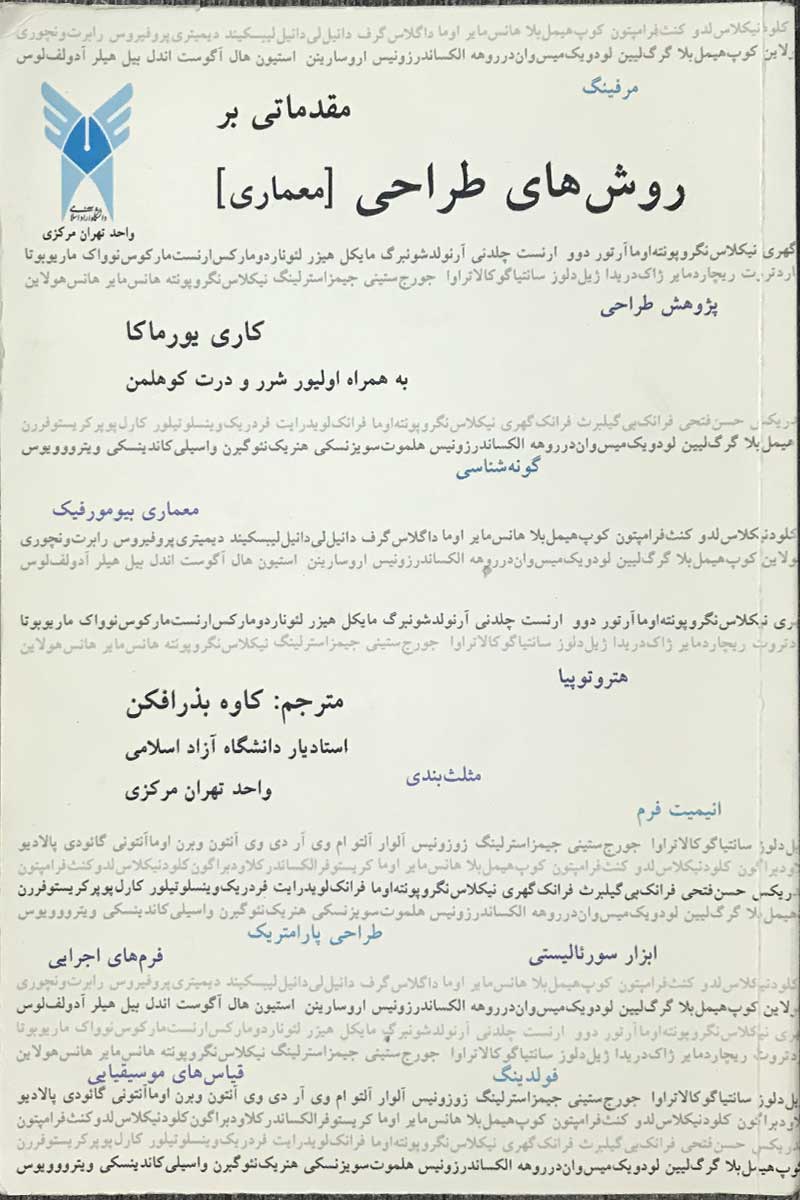 کلودنیکلاس‌لدو کنث‌فرامپتون کوپ‌هیمل‌بلا هانس‌مایر اوما داگلاس‌گرف دانیل‌لی‌دانیل‌لیبسکیند دیمیتری‌پروفیروس رابرت‌ونچوری
ولاین کوپ‌هیمل‌بلا گرگ‌لیین لودویک‌میس‌وان‌در‌روهه الکساندرزونیس اروسارینن استیون هال آگوست اندل بیل هیلر آدولف‌لوس
مرفینگ
مقدماتی بر
روش‌های طراحی [معماری]
واحد تهران مرکزی
گهری نیکلاس‌نگروپونته‌اوماآرتور دوو ارنست چلدنی آرنولدشونبرگ مایکل هیزر لئوناردومارکس‌ارنست‌مارکوس‌نوواک ماریوبوتا
اردتروت ریچاردمایر ژاک‌دریدا ژیل‌دلوز سانتیاگوکالاتراوا جورج‌ستینی جیمزاسترلینگ نیکلاس‌نگروپونته هانس‌مایر هانس‌هولاین
پژوهش طراحی
کاری یورماکا
به همراه اولیور شرر و درت کوهلمن
دریکس حسن‌فتحی فرانک‌بی‌گیلبرث فرانک‌گهری نیکلاس‌نگروپونته‌اوما فرانک‌لویدرایت فردریک‌وینسلوتیلور کارل‌پوپرکریستوفررن
هیمل‌بلا گرگ‌لیین لودویک‌میس‌وان‌در‌روهه الکساندرزونیس هلموت‌سویزنسکی هنریک‌نئوگبرن واسیلی‌کاندینسکی ویترووویوس
گونه‌شناسی
معماری بیومورفیک
کلودنیکلاس‌لدو کنث‌فرامپتون کوپ‌هیمل‌بلا هانس‌مایر اوما داگلاس‌گرف دانیل‌لی‌دانیل‌لیبسکیند دیمیتری‌پروفیروس رابرت‌ونچوری
ولاین کوپ‌هیمل‌بلا گرگ‌لیین لودویک‌میس‌وان‌در‌روهه الکساندرزونیس اروسارینن استیون هال آگوست اندل بیل هیلر آدولف‌لوس
هری نیکلاس‌نگروپونته‌اوماآرتور دوو ارنست چلدنی آرنولدشونبرگ مایکل هیزر لئوناردومارکس‌ارنست‌مارکوس‌نوواک ماریوبوتا
دتروت ریچاردمایر ژاک‌دریدا ژیل‌دلوز سانتیاگوکالاتراوا جورج‌ستینی جیمزاسترلینگ نیکلاس‌نگروپونته هانس‌مایر هانس‌هولاین
هتروتوپیا
مترجم: کاوه بذرافکن
استادیار دانشگاه آزاد اسلامی
مثلث‌بندی
واحد تهران مرکزی
انیمیت فرم
یل‌دلوز سانتیاگوکالاتراوا جورج‌ستینی جیمزاسترلینگ زوزونیس آلوار آلتو ام وی آر دی وی آنتون وبرن اوماآنتونی گائودی پالادیو
لاودپراگون کلودنیکلاس‌لدو کنث‌فرامپتون کوپ‌هیمل‌بلا هانس‌مایر اوما کریستوفرالکساندرکلاودپراگون‌کلودنیکلاس‌لدوکنث‌فرامپتون
دریکس حسن‌فتحی فرانک‌بی‌گیلبرث فرانک‌گهری نیکلاس‌نگروپونته‌اوما فرانک‌لویدرایت فردریک‌وینسلوتیلور کارل‌پوپرکریستوفررن
هیمل‌بلا گرگ‌لیین لودویک‌میس‌وان‌در‌روهه الکساندرزونیس هلموت‌سویزنسکی هنریک‌نئوگبرن واسیلی‌کاندینسکی ویترووویوس
طراحی پارامتریک
ابزار سورئالیستی
فرم‌های اجرایی
کلودنیکلاس‌لدو کنث‌فرامپتون کوپ‌هیمل‌بلا هانس‌مایر اوما داگلاس‌گرف دانیل‌لی‌دانیل‌لیبسکیند دیمیتری‌پروفیروس رابرت‌ونچوری
ولاین کوپ‌هیمل‌بلا گرگ‌لیین لودویک‌میس‌وان‌در‌روهه الکساندرزونیس اروسارینن استیون هال آگوست اندل بیل هیلر آدولف‌لوس
هری نیکلاس‌نگروپونته‌اوماآرتور دوو ارنست چلدنی آرنولدشونبرگ مایکل هیزر لئوناردومارکس‌ارنست‌مارکوس‌نوواک ماریوبوتا
دتروت ریچاردمایر ژاک‌دریدا ژیل‌دلوز سانتیاگوکالاتراوا جورج‌ستینی جیمزاسترلینگ نیکلاس‌نگروپونته هانس‌مایر هانس‌هولاین
فولدینگ
قیاس‌های موسیقیایی
یل‌دلوز سانتیاگوکالاتراوا جورج‌ستینی جیمزاسترلینگ زوزونیس آلوار آلتو ام وی آر دی وی آنتون وبرن اوماآنتونی گائودی پالادیو
لاودپراگون کلودنیکلاس‌لدو کنث‌فرامپتون کوپ‌هیمل‌بلا هانس‌مایر اوما کریستوفرالکساندرکلاودپراگون‌کلودنیکلاس‌لدوکنث‌فرامپتون
دریکس حسن‌فتحی فرانک‌بی‌گیلبرث فرانک‌گهری نیکلاس‌نگروپونته‌اوما فرانک‌لویدرایت فردریک‌وینسلوتیلور کارل‌پوپرکریستوفررن
کوپ‌هیمل‌بلا گرگ‌لیین لودویک‌میس‌وان‌در‌روهه الکساندرزونیس هلموت‌سویزنسکی هنریک‌نئوگبرن واسیلی‌کاندینسکی ویترووویوس